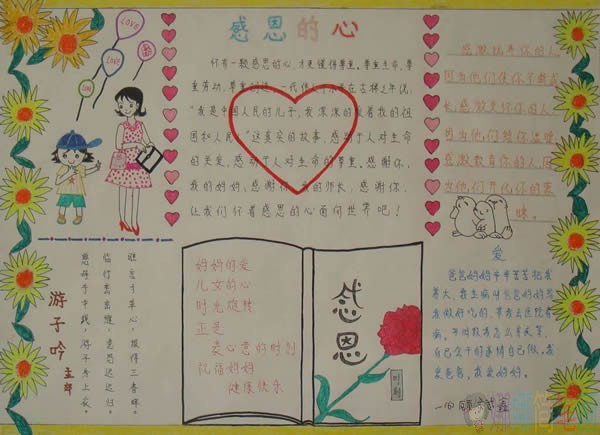 感恩的心
LOVE
LOVE
怀有一颗感恩的心,才更懂得尊重。尊重生命、尊
重劳动、尊重创造。一代伟人邓小平在古稀之年说:
"我是中国人民的儿子,我深深的 着我的祖
国和人民。"这真实的故事,感动了人对生命
的关爱,感动了人对生命的尊重。感谢你,
我的妈妈,感谢你,我的师长,感谢你,
让我们怀着感恩的心面向世界吧!
感激抚养你的人,
因为他们使你不断成
长,感激关爱你的人,
因为他们给你温暖
感激教育你的人,因
为他们开化你的蒙
昧。
游子吟
孟郊
慈母手中线,游子身上衣。
临行密密缝,意恐迟迟归。
谁言寸草心,报得三春晖。
妈妈的爱
儿女的心
时光旋转
正是
表心意的时刻
祝福妈妈
健康快乐
感恩
时刻
爱
爸爸妈妈辛辛苦苦把我
养大,我生病时爸爸妈妈给
我做好吃的,带我去医院看
病。平时教我怎么
自己会干的事情自己做。我
爱爸爸,我爱妈妈。